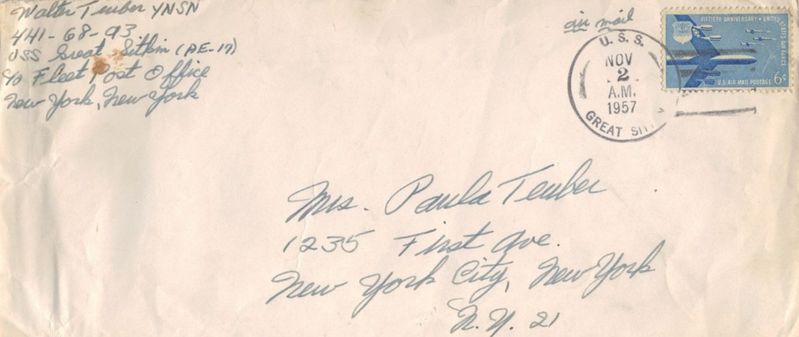 Walter Teuber YNSN
441-68-93
USS Great Sitkin (AE-17)
c/o Fleet Post Office
New York, New York
air mail
U.S.S.
NOV
2
A.M.
1957
GREAT SIT
FIFTIETH ANNIVERSARY • UNITED STATES AIR FORCE
U.S. AIR MAIL POSTAGE 6¢
Mrs. Paula Teuber
1235 First Ave.
New York City, New York
N.Y. 21